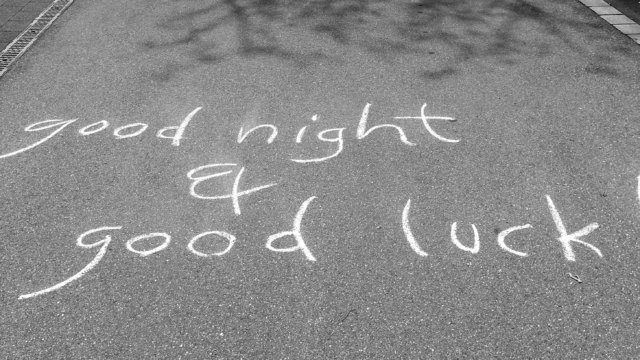 good night
&
good luck